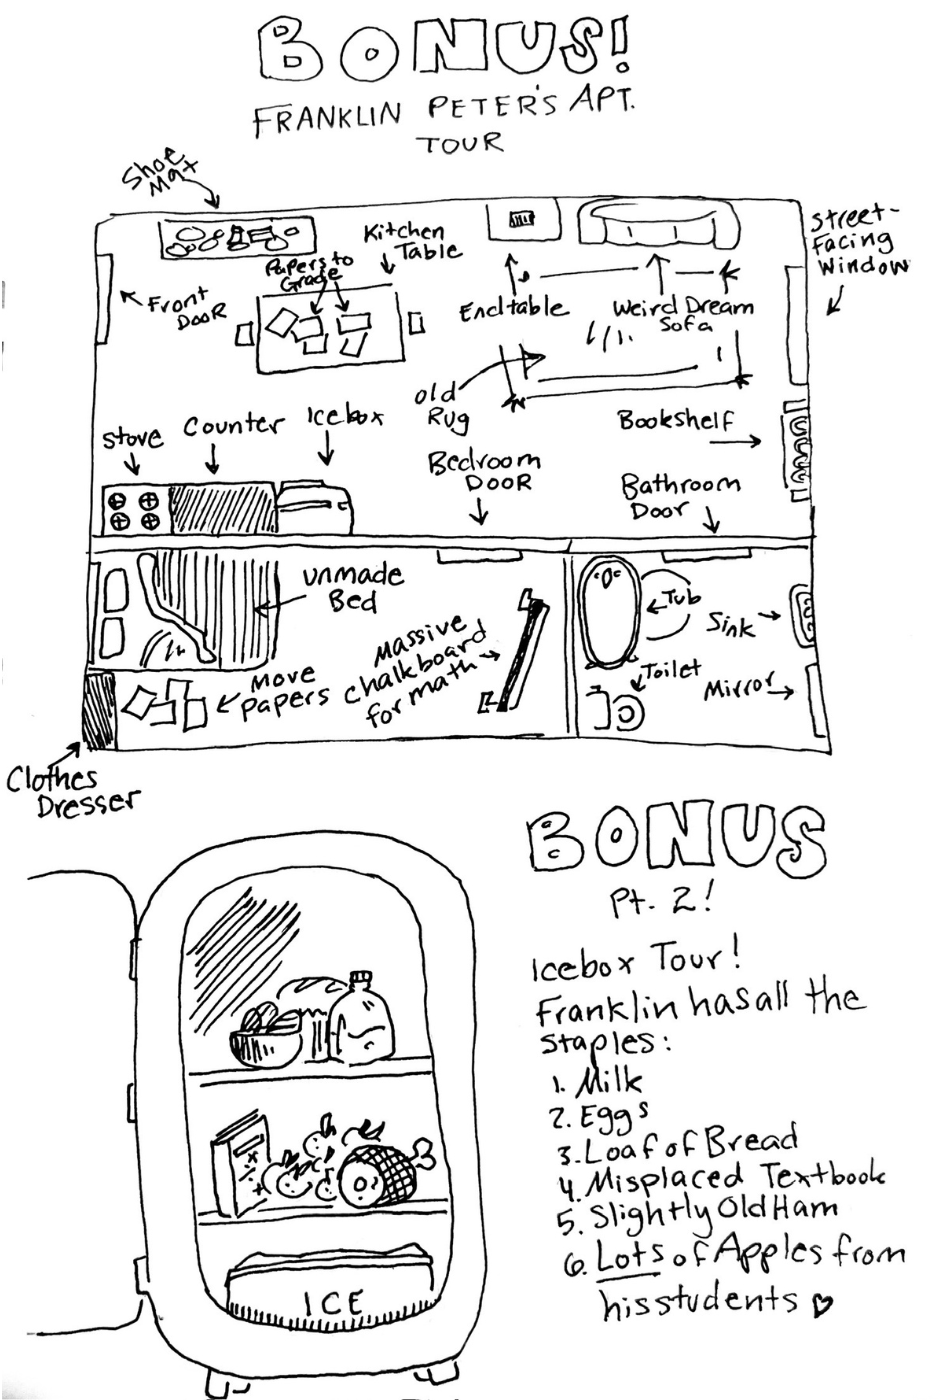 BONUS!
FRANKLIN PETER'S APT.
TOUR
Shoe
Mat
Kitchen
Table
Papers to
Grade
Front
DooR
Endtable
Weird Dream
Sofa
Street-
Facing
Window
old
Rug
Bookshelf
Stove
Counter
Icebox
Bedroom
DOOR
Bathroom
Door
unmade
Bed
Massive
chalkboard
for math
Move
papers
Tub
Sink
Toilet
Mirror
Clothes
Dresser
BONUS
Pt. 2!
Icebox Tour!
Franklin has all the
staples:
1. Milk
2. Eggs
3. Loaf of Bread
4. Misplaced Textbook
5. Slightly Old Ham
6. Lots of Apples from
his students
ICE